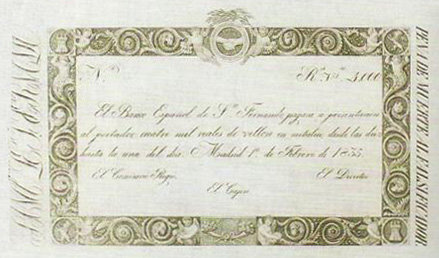 N.º R.s V.n 4.000
El Banco Español de S.n Fernando pagará a presentación
al portador cuatro mil reales de vellon en metalico desde las diez
hasta la una del dia. Madrid 1.º de Febrero de 1835.
El Comisario Regio, El Director
El Cajero
PENA DE MUERTE AL FALSIFICADOR